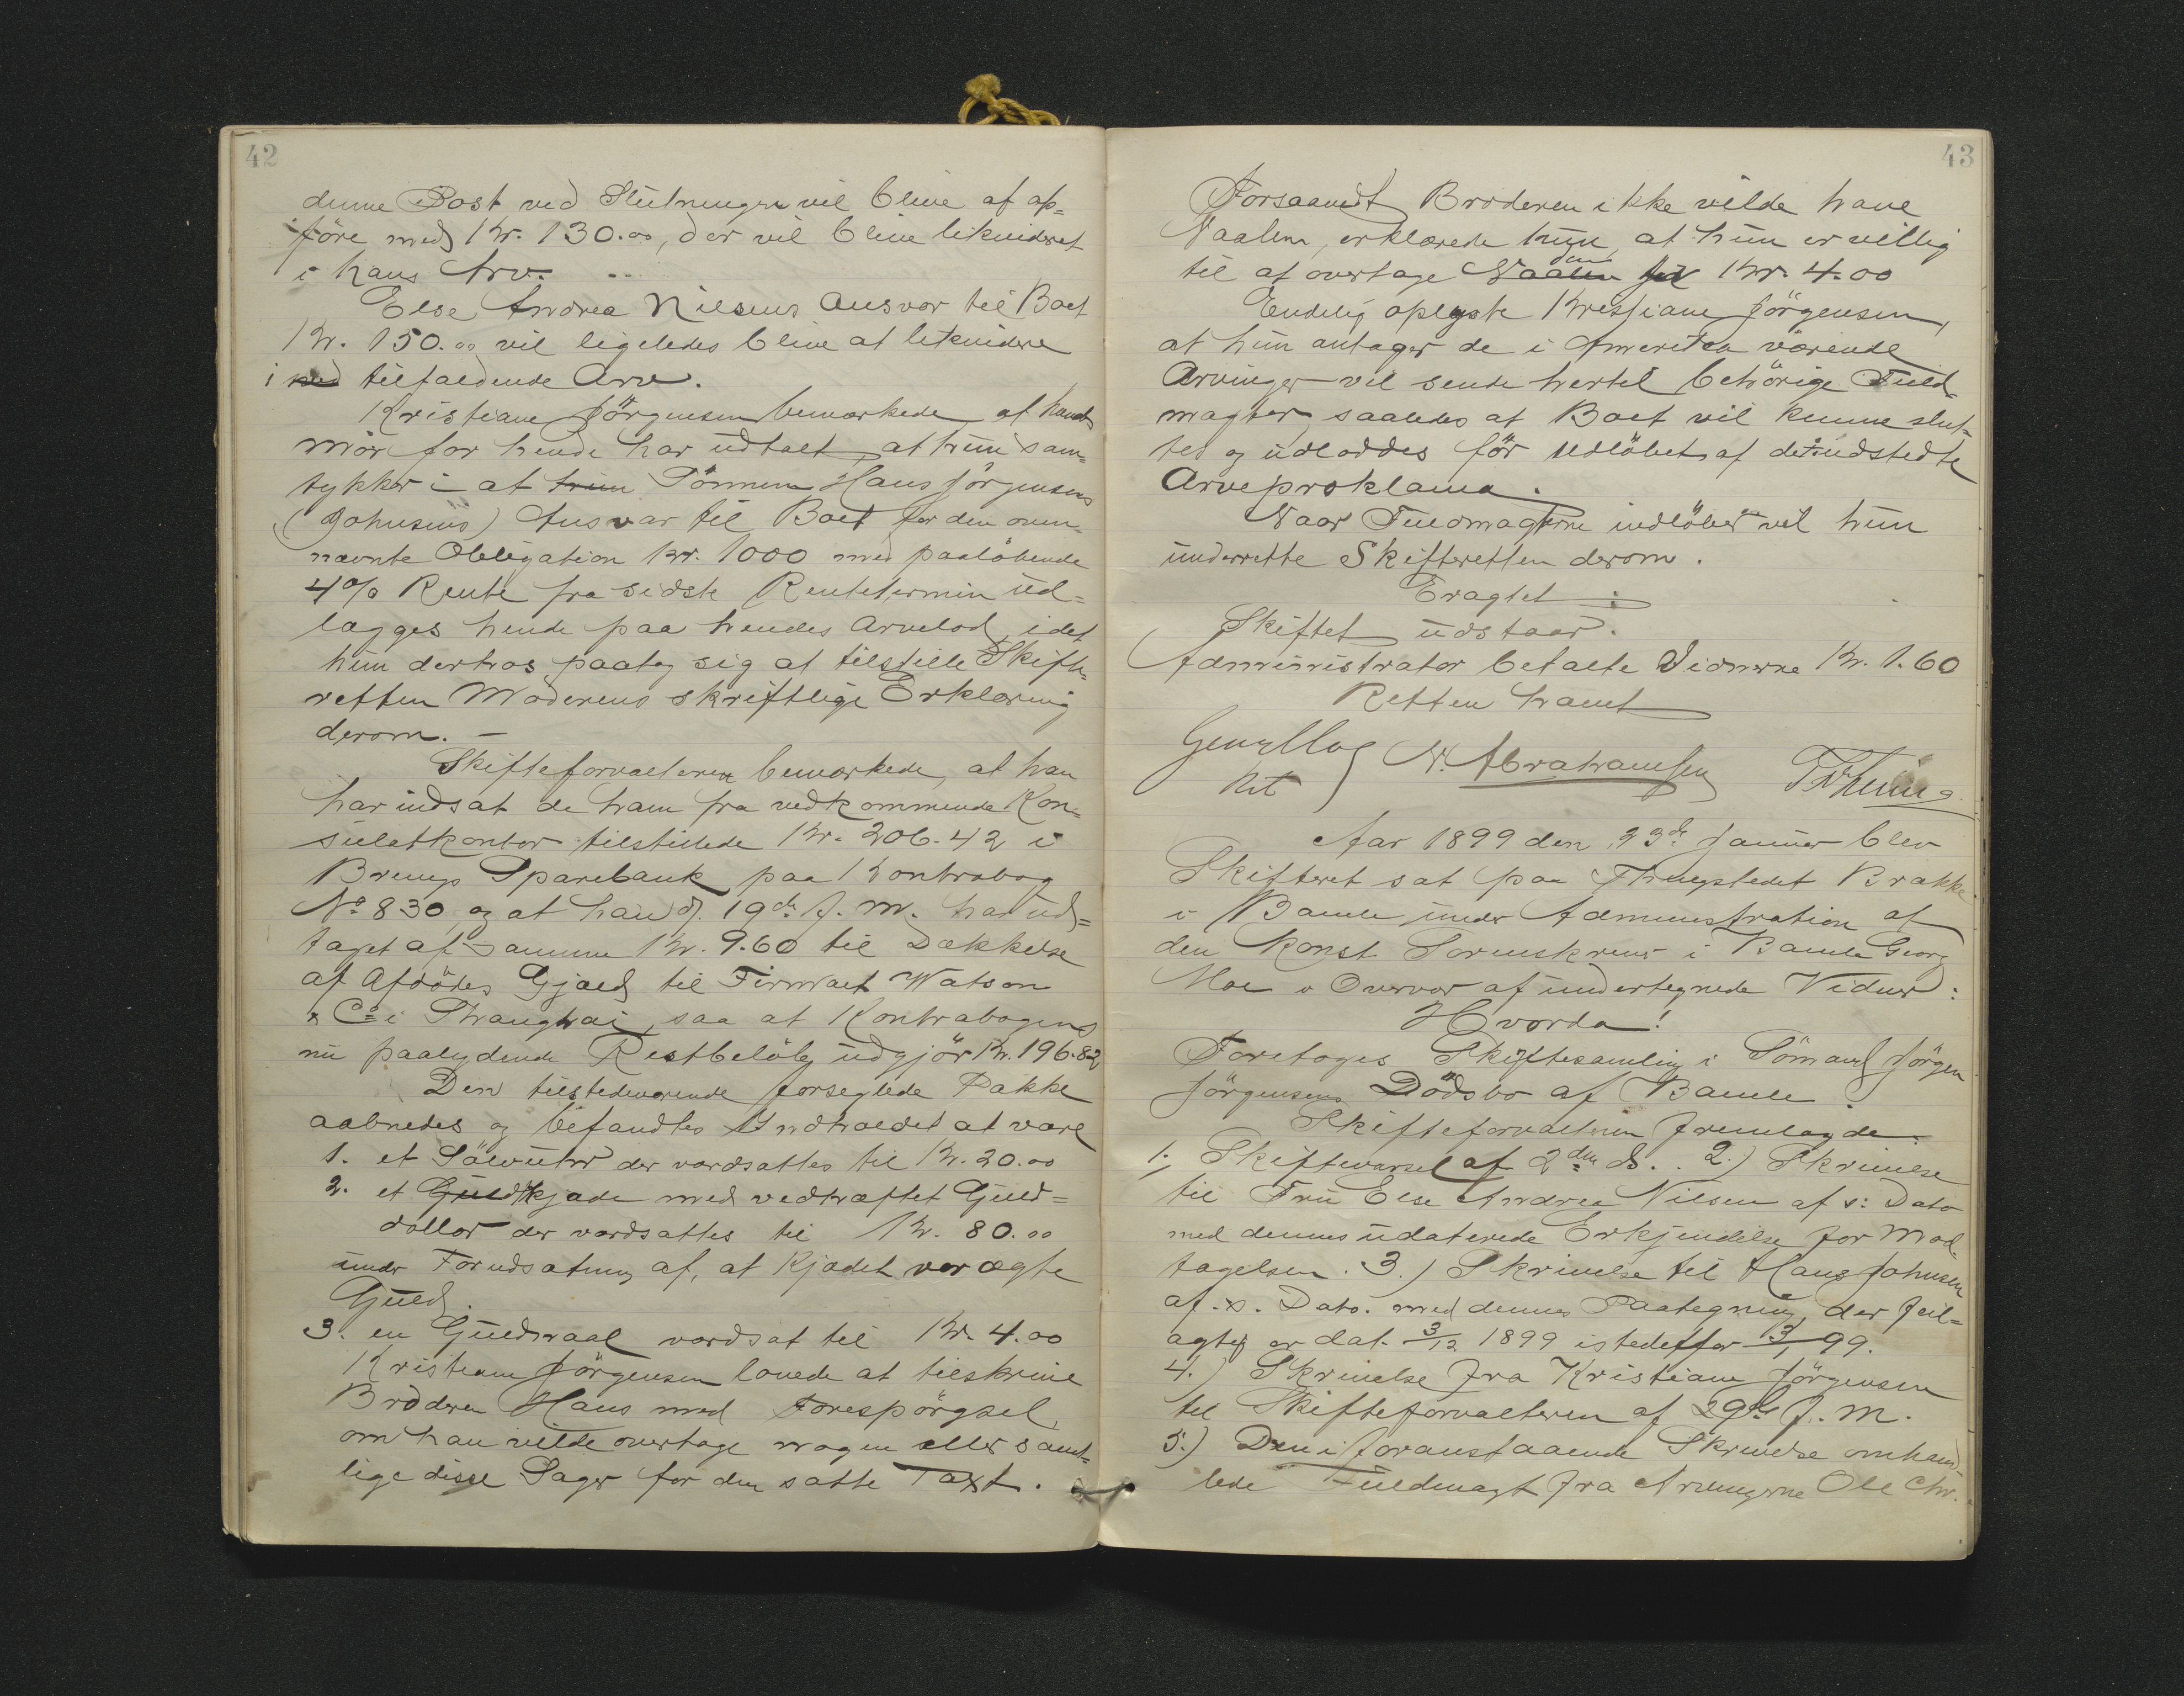 42
denne Post ved Slutningen vil blive af op-
føre med Kr. 130.00, der vil blive likvideret
i hans Arv.
Else Andrea Nilsens Ansvar til Boet
Kr. 150.00 vil ligeledes blive at likvidere
i ved tilfaldende Arv.
Kristiane Jörgensen bemærkede at hendes
Mor for hende har udtalt, at hun sam-
tykker i at hun Sönnen Hans Jörgensens
(Johnsens) Ansvar til Boet for den oven-
nævnte Obligation Kr. 1000 med paalöbende
4% Rente fra sidste Rentetermin ud-
lægges hende paa hendes Arvelod, idet
hun derhos paatog sig at tilstille Skifte-
retten Moderens skriftlige Erklæring
derom. –
Skifteforvalteren bemærkede, at han
har indsat de ham fra vedkommende Kon-
sulatkontor tilstillede Kr. 206.42 i
Brevigs Sparebank paa Kontrabog
No 830, og at han d. 19de f. M. har ud-
taget af samme Kr. 9.60 til Dækkelse
af Afdödes Gjæld til Firmaet Watson
& Co i Shanghai, saa at Kontrabogens
nu paalydende Restbelöb udgjör Kr. 196.82
Den tilstedeværende forseglede Pakke
aabnedes og befandtes Indholdet at være
1. et Sölvuhr der værdsattes til Kr. 20.00
2. et Guldkjæde med vedhæftet Guld-
dollar der værdsattes til Kr. 80.00
under Forudsætning af, at Kjædet var ægte
Guld.
3. en Guldnaal værdsat til Kr. 4.00
Kristiane Jörgensen lovede at tilskrive
Broderen Hans med Forespörgsel,
om han vilde overtage nogen eller samt-
lige disse Sager for den satte Taxt.
43
Forsaavidt Broderen ikke vilde have
Naalen, erklærede hun, at hun er villig
til at overtage Naalen den for Kr. 4.00
Endelig oplyste Kristiane Jörgensen,
at hun antager de i Amerika værende
Arvinger vil sende hertil behörige Fuld-
magter saaledes at Boet vil kunne slut-
tes og udloddes för Udlöbet af det udstedte
Arveproklama.
Naar Fuldmagterne indlöber vil hun
underrette Skifteretten derom.
Eragtet:
Skiftet udstaar.
Administrator betalte Vidnerne Kr. 1.60
Retten hævet
Georg Moe N. Abrahamsen
kst
Aar 1899 den 23de Januar blev
Skifteret sat paa Thingstedet Brakke
i Bamle under Administration af
den konst. Sorenskriver i Bamle Georg
Moe i Overvær af undertegnede Vidner:
Hvorda!
Foretoges Skiftesamling i Sömand Jörgen
Jörgensens Dödsbo af Bamle.
Skifteforvalteren fremlagde:
1. Skiftevarsel af 2den ds. 2.) Skrivelse
til Fru Else Andrea Nilsen af s: Dato
med dennes udaterede Erkjendelse for Mod-
tagelsen. 3.) Skrivelse til Hans Johnsen
af s. Dato. med dennes Paategning, der feil-
agtig er dat. 3/12 1899 istedetfor 3/1 99.
4.) Skrivelse fra Kristiane Jörgensen
til Skifteforvalteren af 29de f. M.
5.) Den i foranstaaende Skrivelse omhand-
lede Fuldmagt fra Arvingerne Ole Chr.